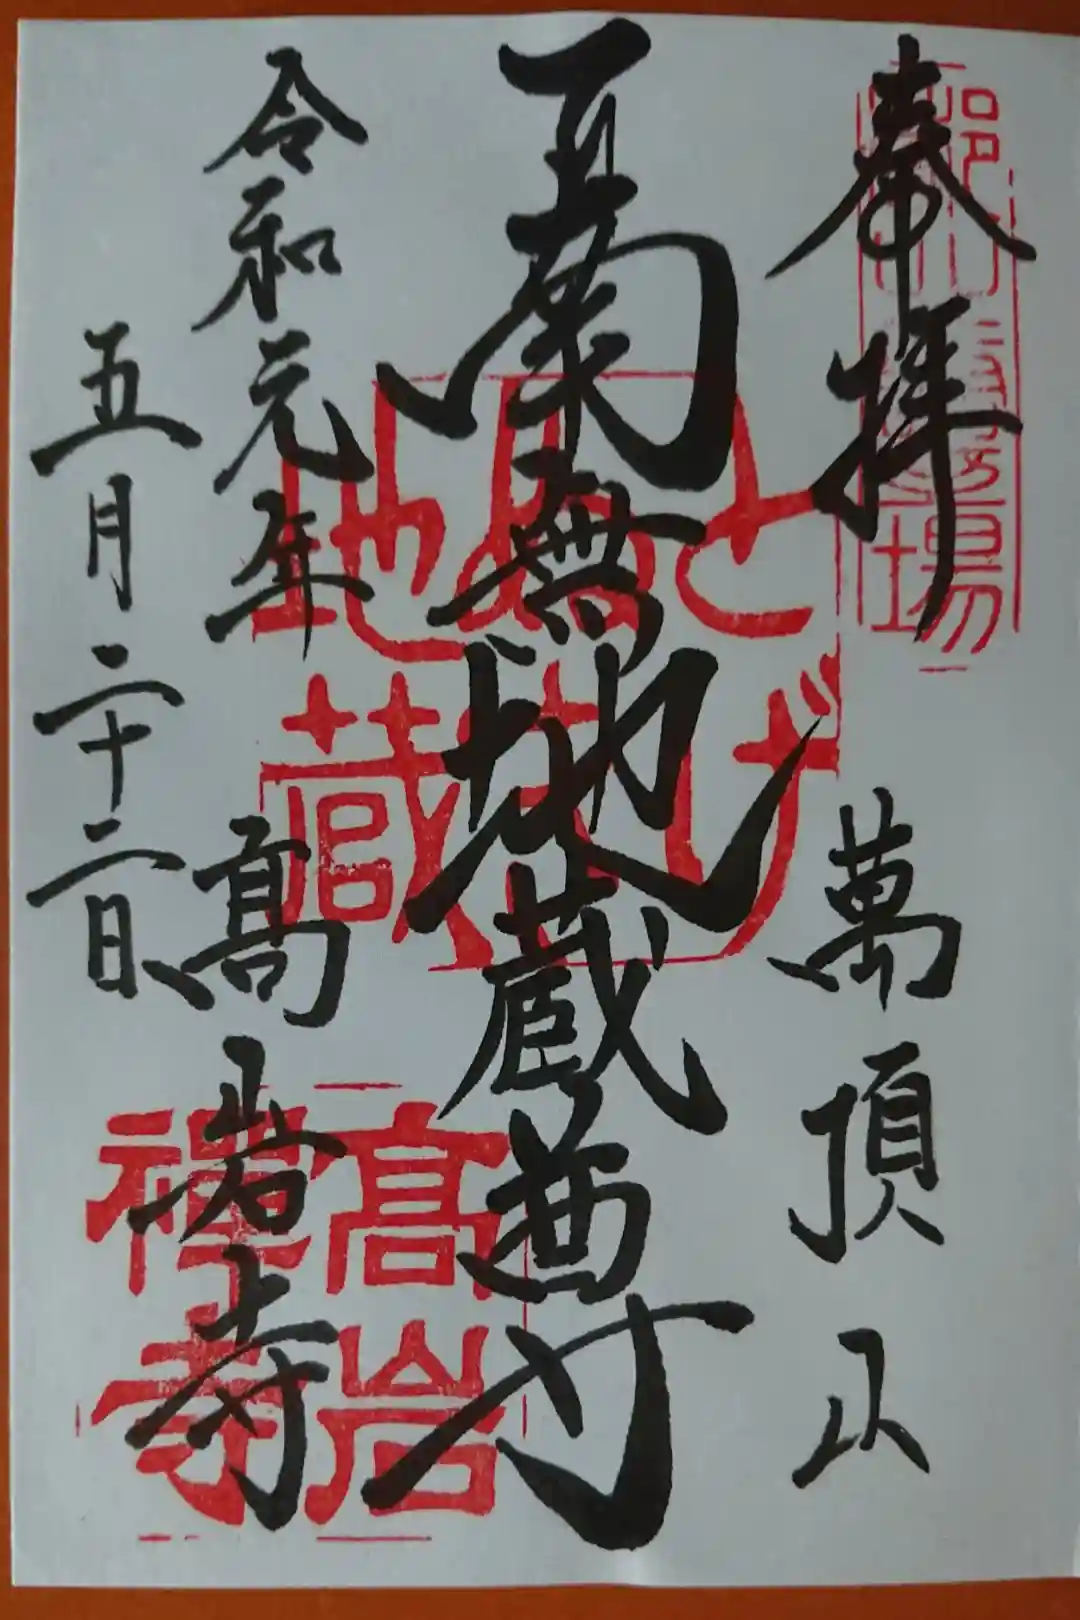 奉拝
萬頂山
南無地蔵尊
令和元年
五月二十二日
髙岩寺
とげ
ぬき
地蔵
髙岩
禪寺